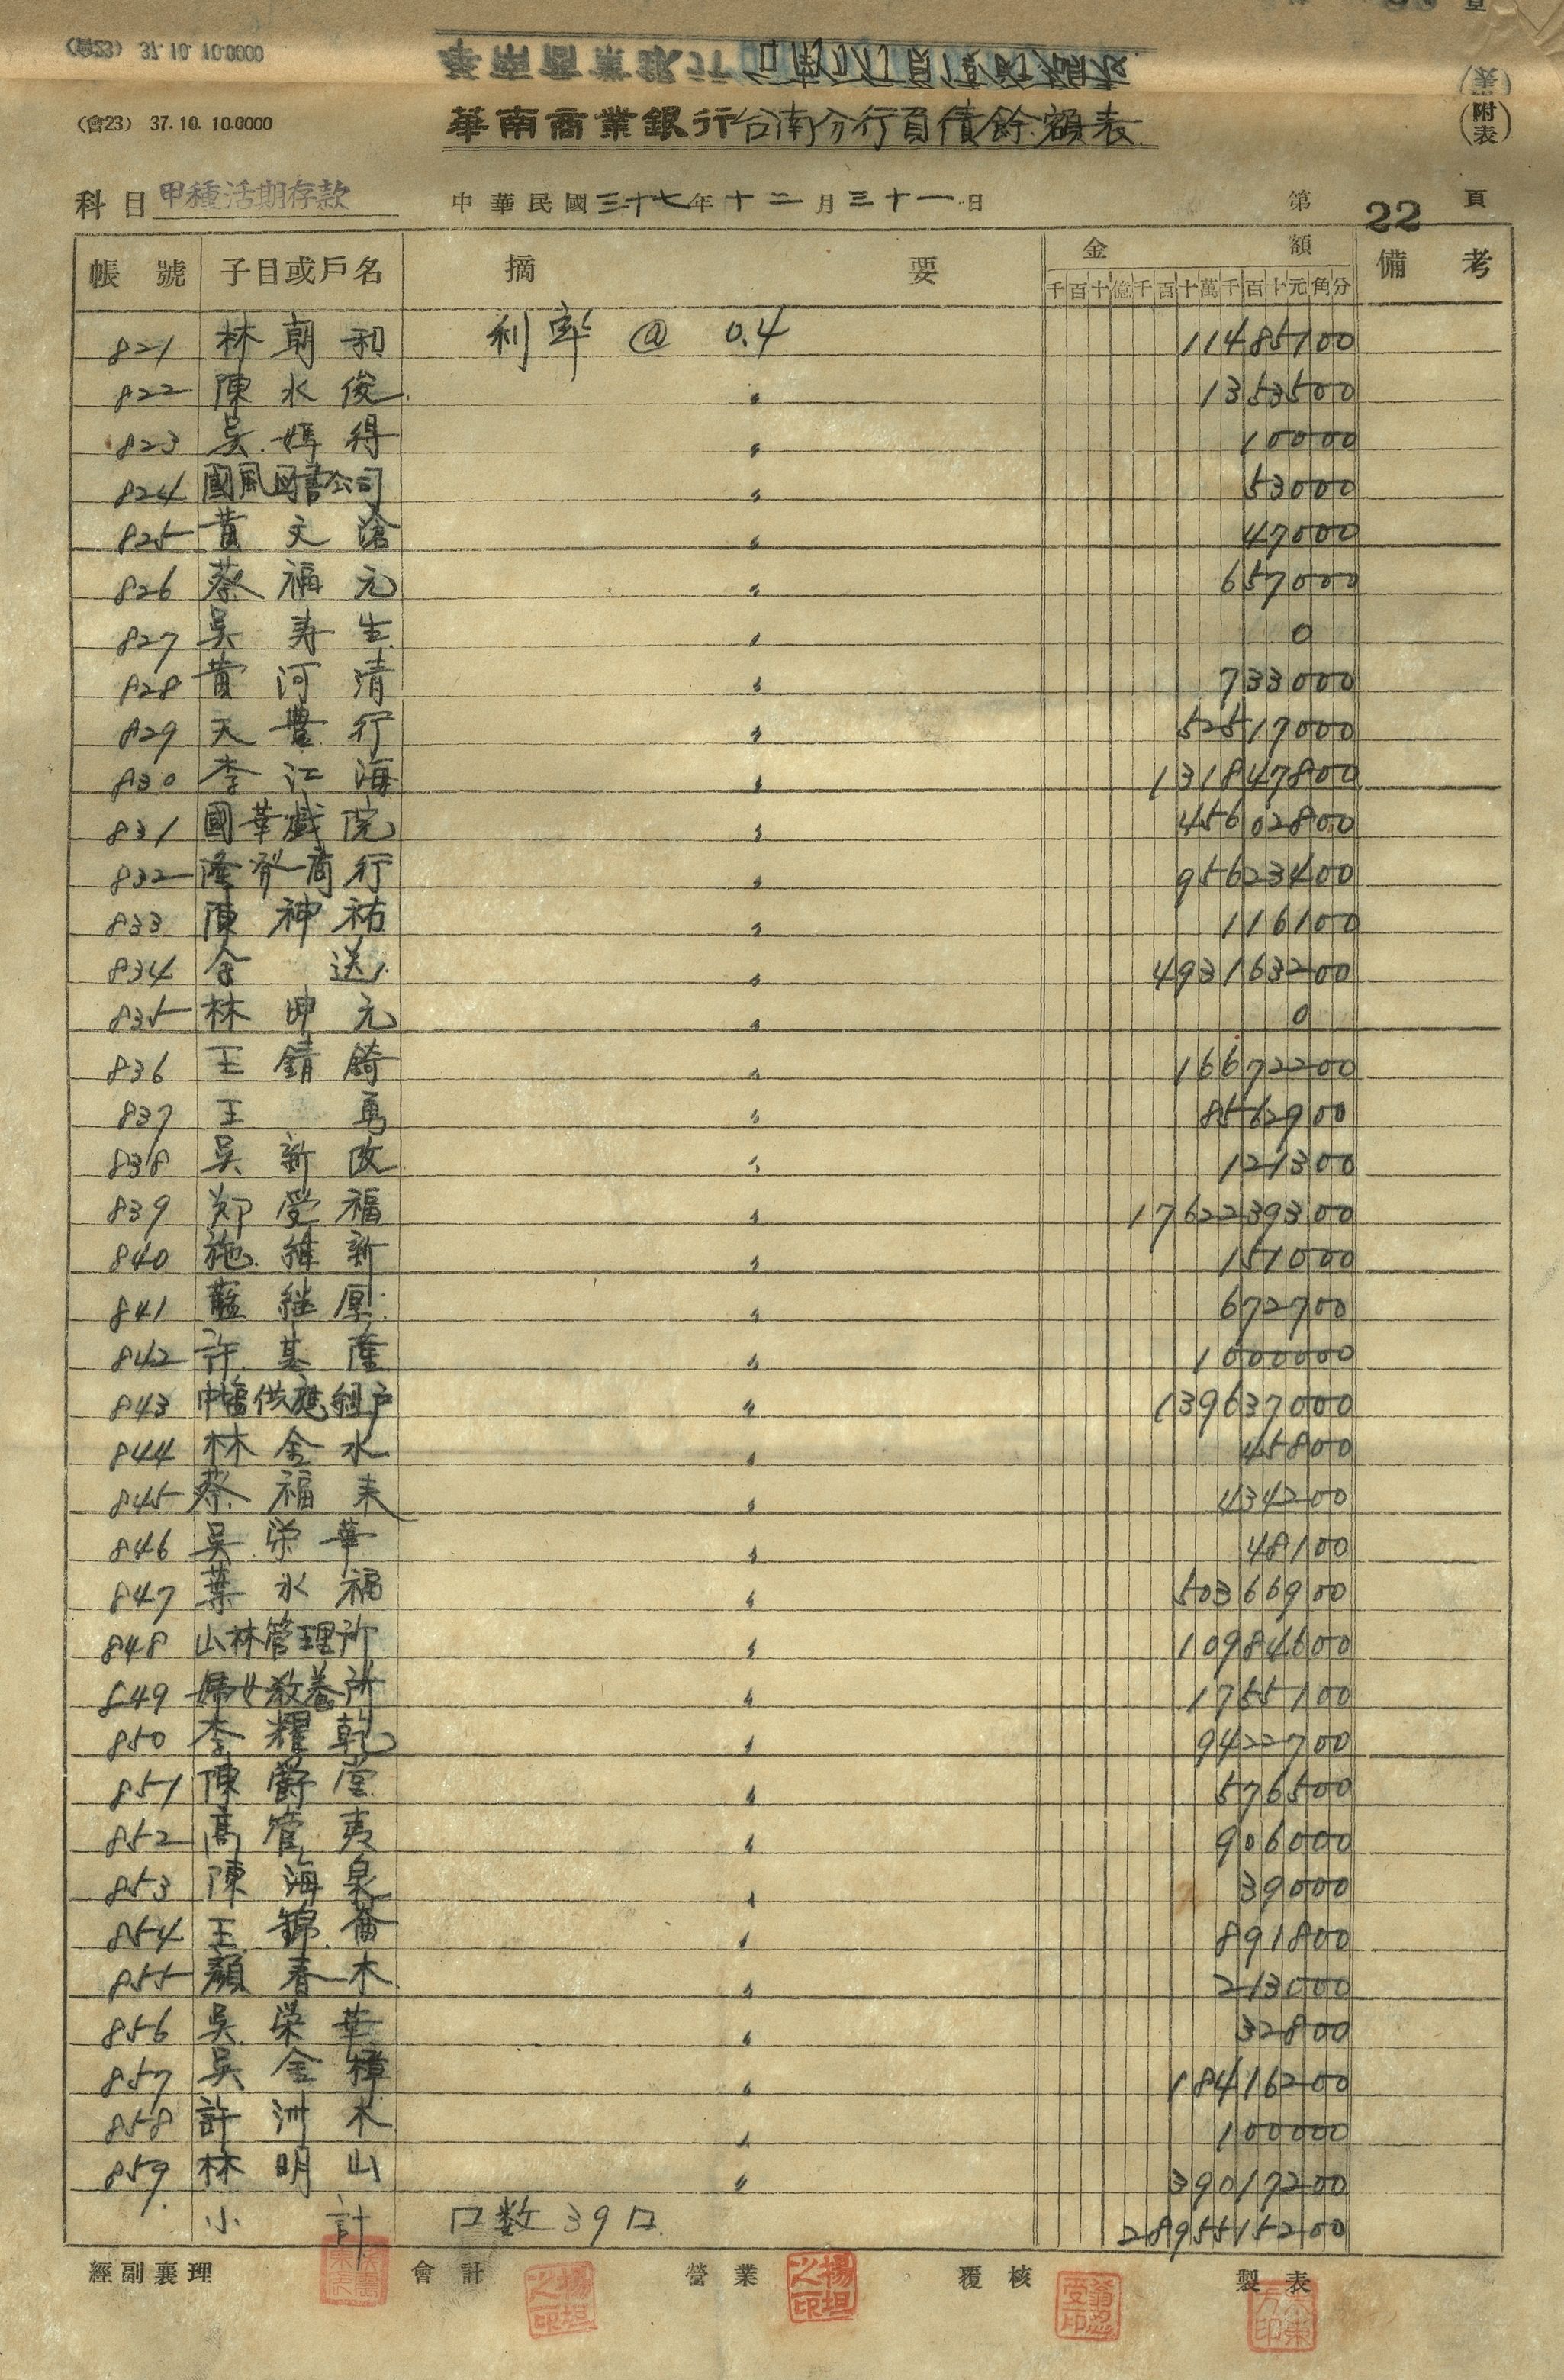 (會23) 37.10.10.0000
華南商業銀行台南分行負債餘額表
(附表)
科目 甲種活期存款 中華民國三十七年十二月三十一日 第22頁
帳號 子目或戶名 摘要 金額 備考
千百十億千百十萬千百十元角分
821 林朝和 利率 @ 0.4 11485100
822 陳水俊 〃 1353500
823 吳得 〃 10000
824 國風図書公司 〃 53000
825 黃文滄 〃 47000
826 蔡福元 〃 657000
827 吳寿生 〃 0
828 黃河清 〃 733000
829 天豊行 〃 52517000
830 李江海 〃 131847800
831 國華戲院 〃 45602800
832 隆發商行 〃 95623400
833 陳神祐 〃 116100
834 余送 〃 493163200
835 林坤元 〃 0
836 王錆錡 〃 16672200
837 王勇 〃 8562900
838 吳新改 〃 121300
839 郑受福 〃 1762239300
840 施維新 〃 151000
841 藍継厚 〃 672700
842 許基 〃 1000000
843 供應組戶 〃 139637000
844 林金水 〃 45800
845 蔡福来 〃 434200
846 吳栄華 〃 48100
847 葉水福 〃 50366900
848 山林管理所 〃 10984600
849 婦女教養所 〃 1755100
850 李耀乾 〃 9422700
851 陳爵堂 〃 576500
852 高管夷 〃 906000
853 陳海泉 〃 39000
854 王錦 〃 891800
855 顏春木 〃 213000
856 吳栄華 〃 32800
857 吳金樟 〃 18416200
858 許洲木 〃 100000
859 林明山 〃 39017200
小計 口数39口 2895515200
經副襄理 會計 營業 覆核 製表
楊坦之印